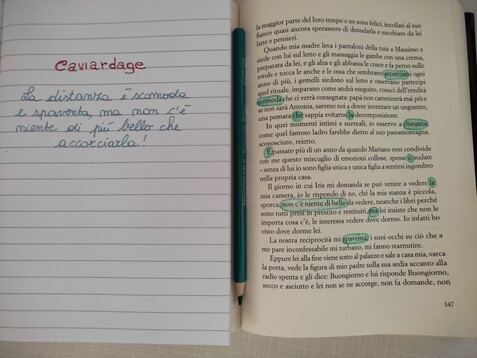 Caviardage
La distanza è scomoda
e spaventa, ma non c'è
niente di più bello che
accorciarla!
la maggior parte del loro tempo e ne sono felici, incollati al suo
fianco quasi ancora sperassero di denudarla e succhiare da lei
latte e pensieri.
Quando mia madre leva i pantaloni della tuta a Massimo e
siede con lui sul letto e gli massaggia le gambe con una crema,
preparata da lei, e gli alza e gli abbassa le cosce e fa perno sulle
rotule e tocca le anche e le ossa che sembrano accorciarsi ogni
anno di più, i gemelli siedono sul letto e osservano pazienti
quel rituale, imparano come andrà eseguito, consci dell'eredità
scomoda che ci verrà consegnata: papà non camminerà mai più e
se non sarà Antonia, saremo noi a dover inventare un unguento,
una pomata che sappia evitare la decomposizione.
In quei momenti intimi e surreali, io osservo a distanza,
come quel famoso ladro farebbe dietro al suo passamontagna,
sconosciuto, reietto.
È passato più di un anno da quando Mariano non condivide
con me questo miscuglio di emozioni collose, spesse e sudate
– senza di lui io sono figlia unica e unica figlia a sentirsi ingombro
nella propria casa.
Il giorno in cui Iris mi domanda se può venire a vedere la
mia camera, io le rispondo di no, ché la mia stanza è piccola,
sporca, non c'è niente di bello da vedere, neanche i libri perché
sono tutti presi in prestito e restituiti, ma lei insiste che non le
importa cosa c'è, le interessa vedere dove dormo. Io infatti ho
visto dove dorme lei.
La nostra reciprocità mi spaventa, i suoi occhi su ciò che a
me pare inconfessabile mi turbano, mi fanno starnutire.
Eppure lei alla fine viene sotto al palazzo e sale a casa mia, varca
la porta, vede la figura di mio padre sulla sua sedia accanto alla
radio spenta e gli dice: Buongiorno e lui risponde Buongiorno,
secco e asciutto e lei non se ne accorge, non fa domande, non
147